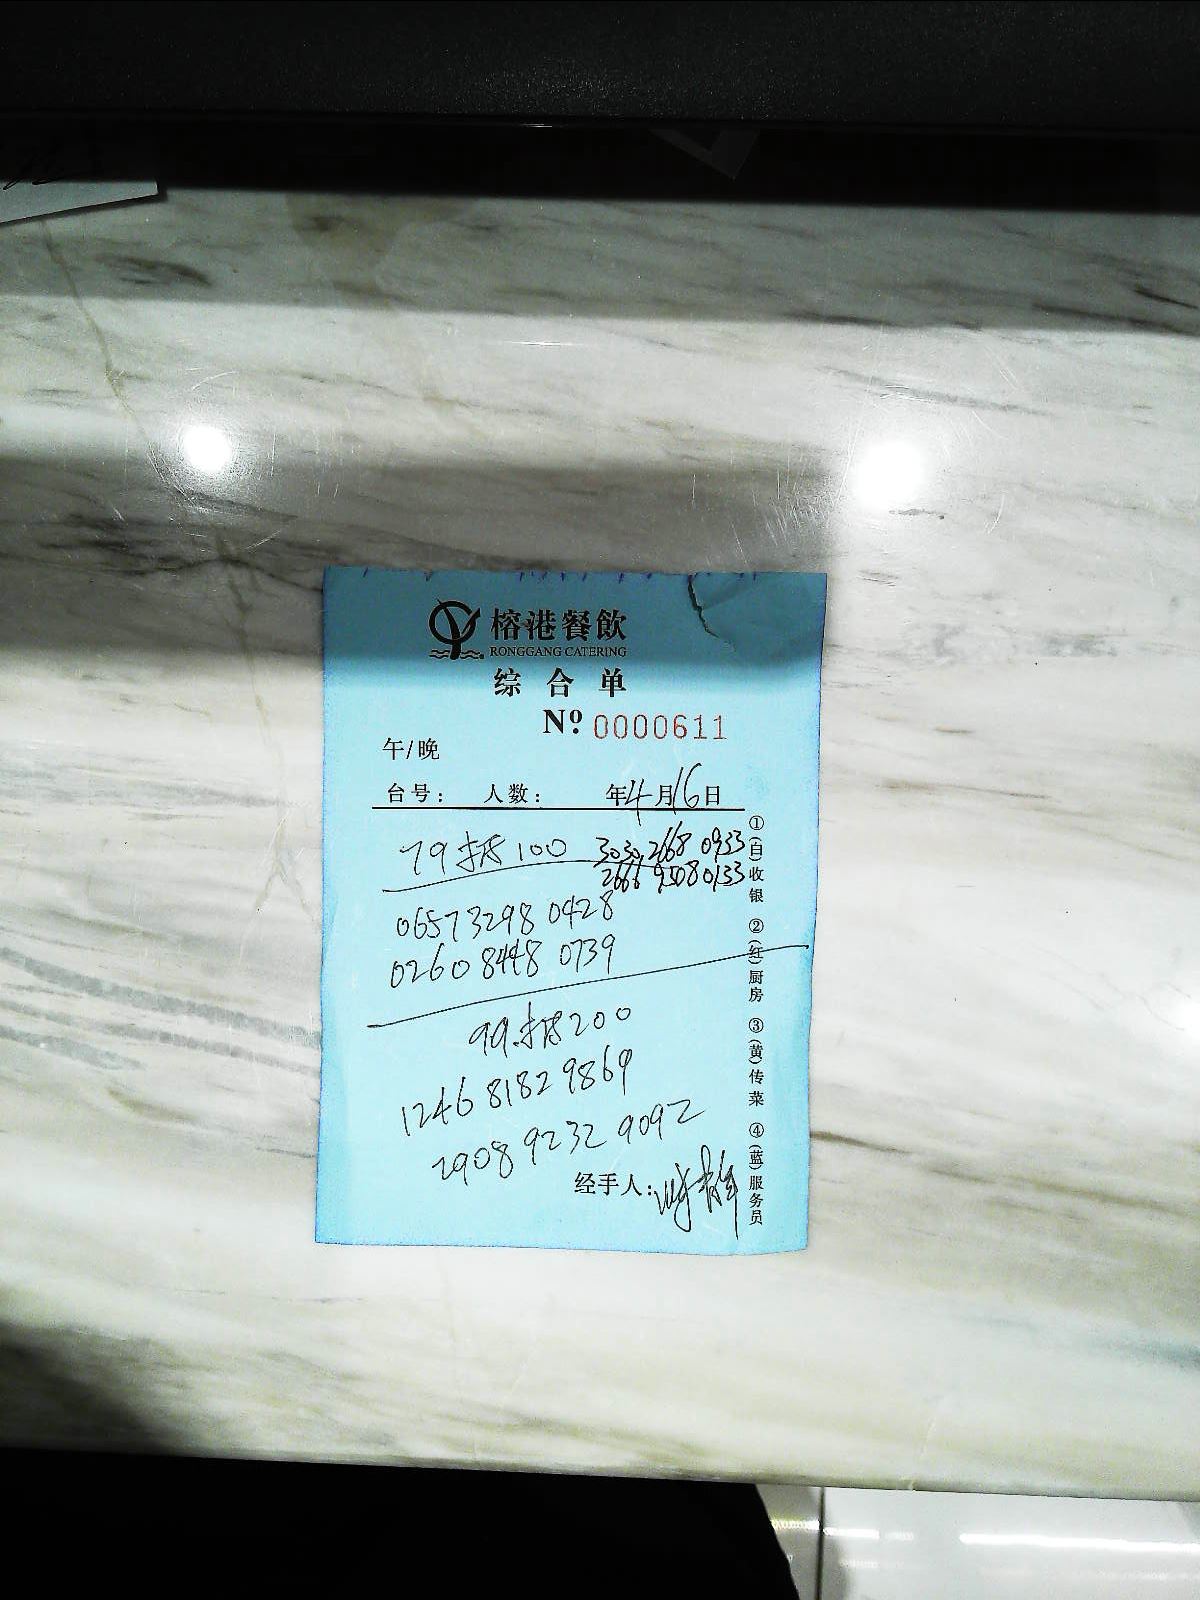 榕港餐飲
RONGGANG CATERING
综合单
Nº 0000611
午/晚
台号： 人数： 年4月16日
79抵100 3030 2668 0933
2666 9508 0133
0657 3298 0428
0260 8448 0739
99抵200
1246 8182 9869
2908 9232 9092
经手人：
①(白)收银 ②(红)厨房 ③(黄)传菜 ④(蓝)服务员